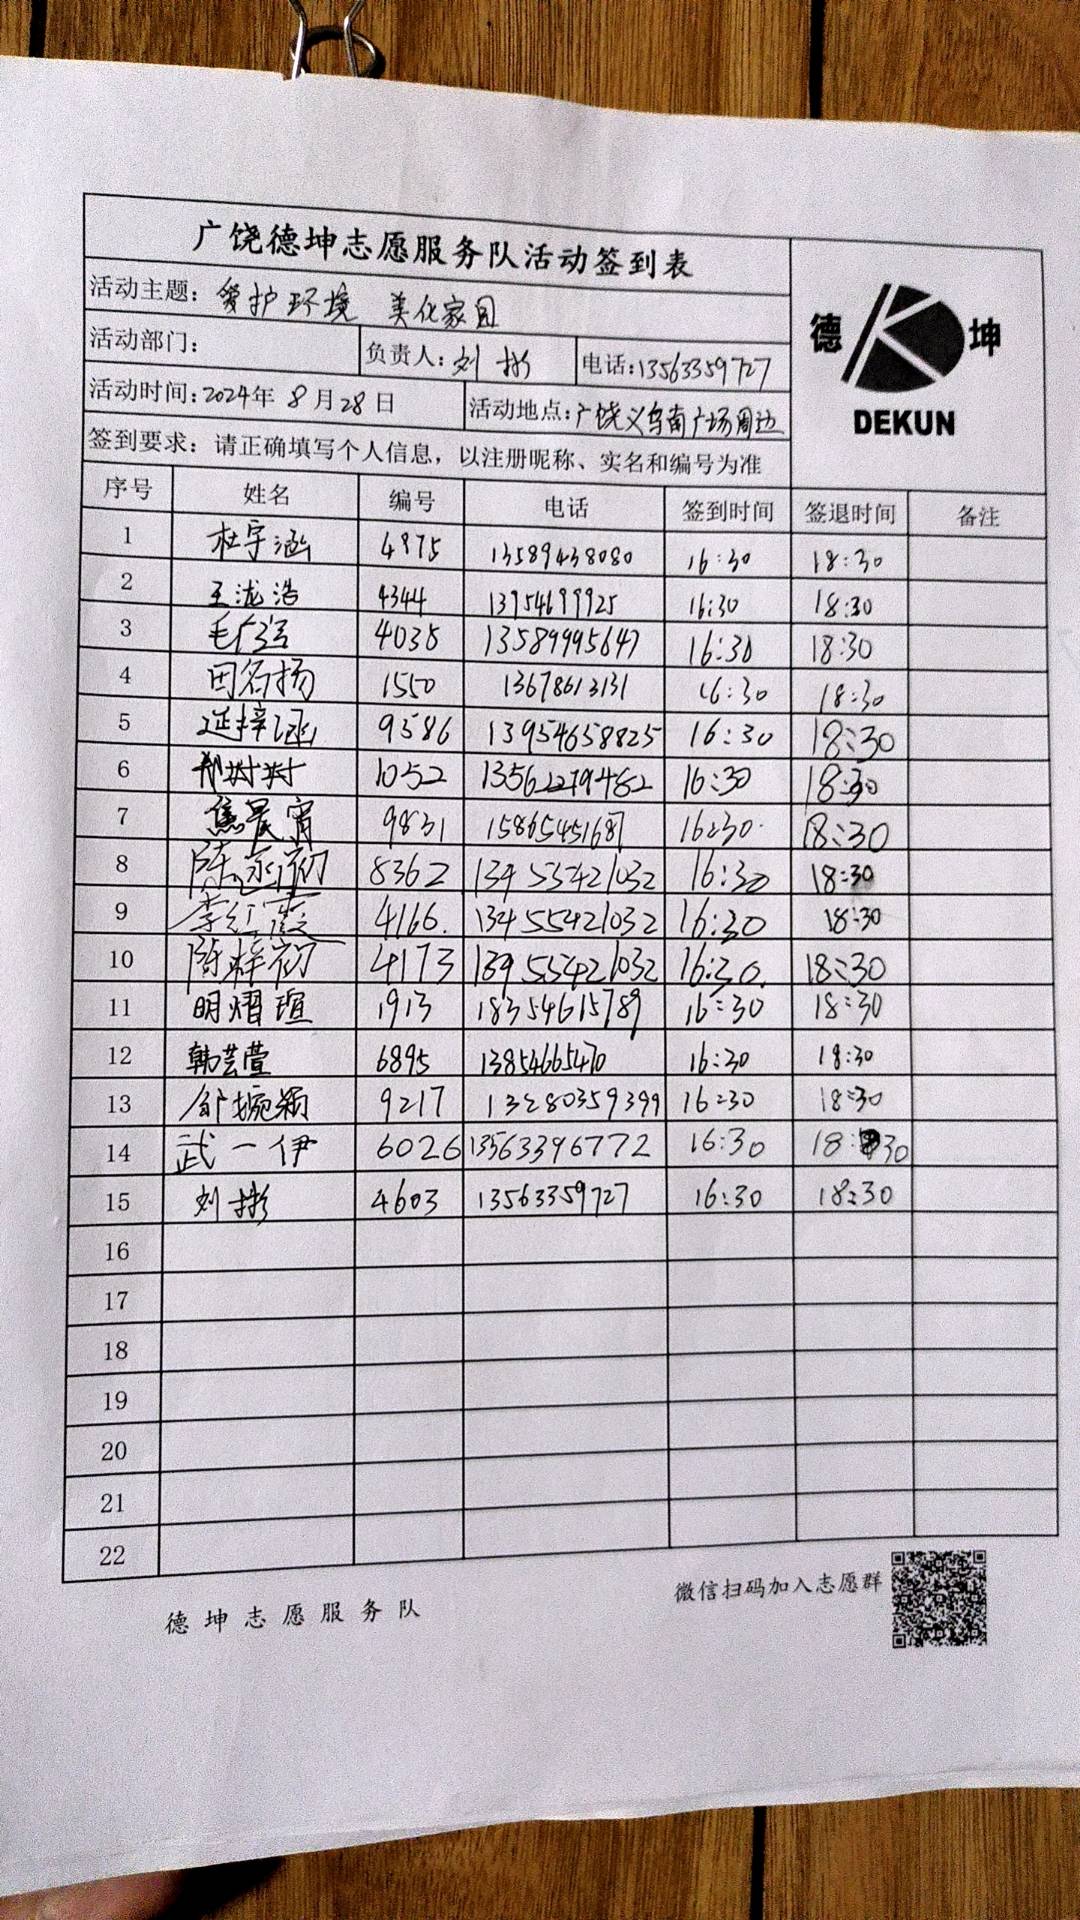 广饶德坤志愿服务队活动签到表
活动主题：爱护环境 美化家园
德 坤
DEKUN
活动部门： 负责人：刘彬 电话：13563359727
活动时间：2024年 8月28日 活动地点：广饶义乌南广场周边
签到要求：请正确填写个人信息，以注册昵称、实名和编号为准
序号 姓名 编号 电话 签到时间 签退时间 备注
1 杜宇涵 4975 13589438080 16:30 18:30
2 王泷浩 4344 13954699925 16:30 18:30
3 毛广强 4035 13589995647 16:30 18:30
4 田名扬 1550 13678613131 16:30 18:30
5 延梓涵 9586 13954658825 16:30 18:30
6 1052 13562279482 16:30 18:30
7 焦晨宵 9831 15865451687 16:30 18:30
8 8362 13455421032 16:30 18:30
9 李红霞 4166 13455421032 16:30 18:30
10 陈梓初 4173 13455421032 16:30 18:30
11 明熠瑄 1913 18354615789 16:30 18:30
12 韩芸萱 6895 13854665470 16:30 18:30
13 邹婉颖 9217 13280359399 16:30 18:30
14 武一伊 6026 13563396772 16:30 18:30
15 刘彬 4603 13563359727 16:30 18:30
16
17
18
19
20
21
22
德坤志愿服务队 微信扫码加入志愿群